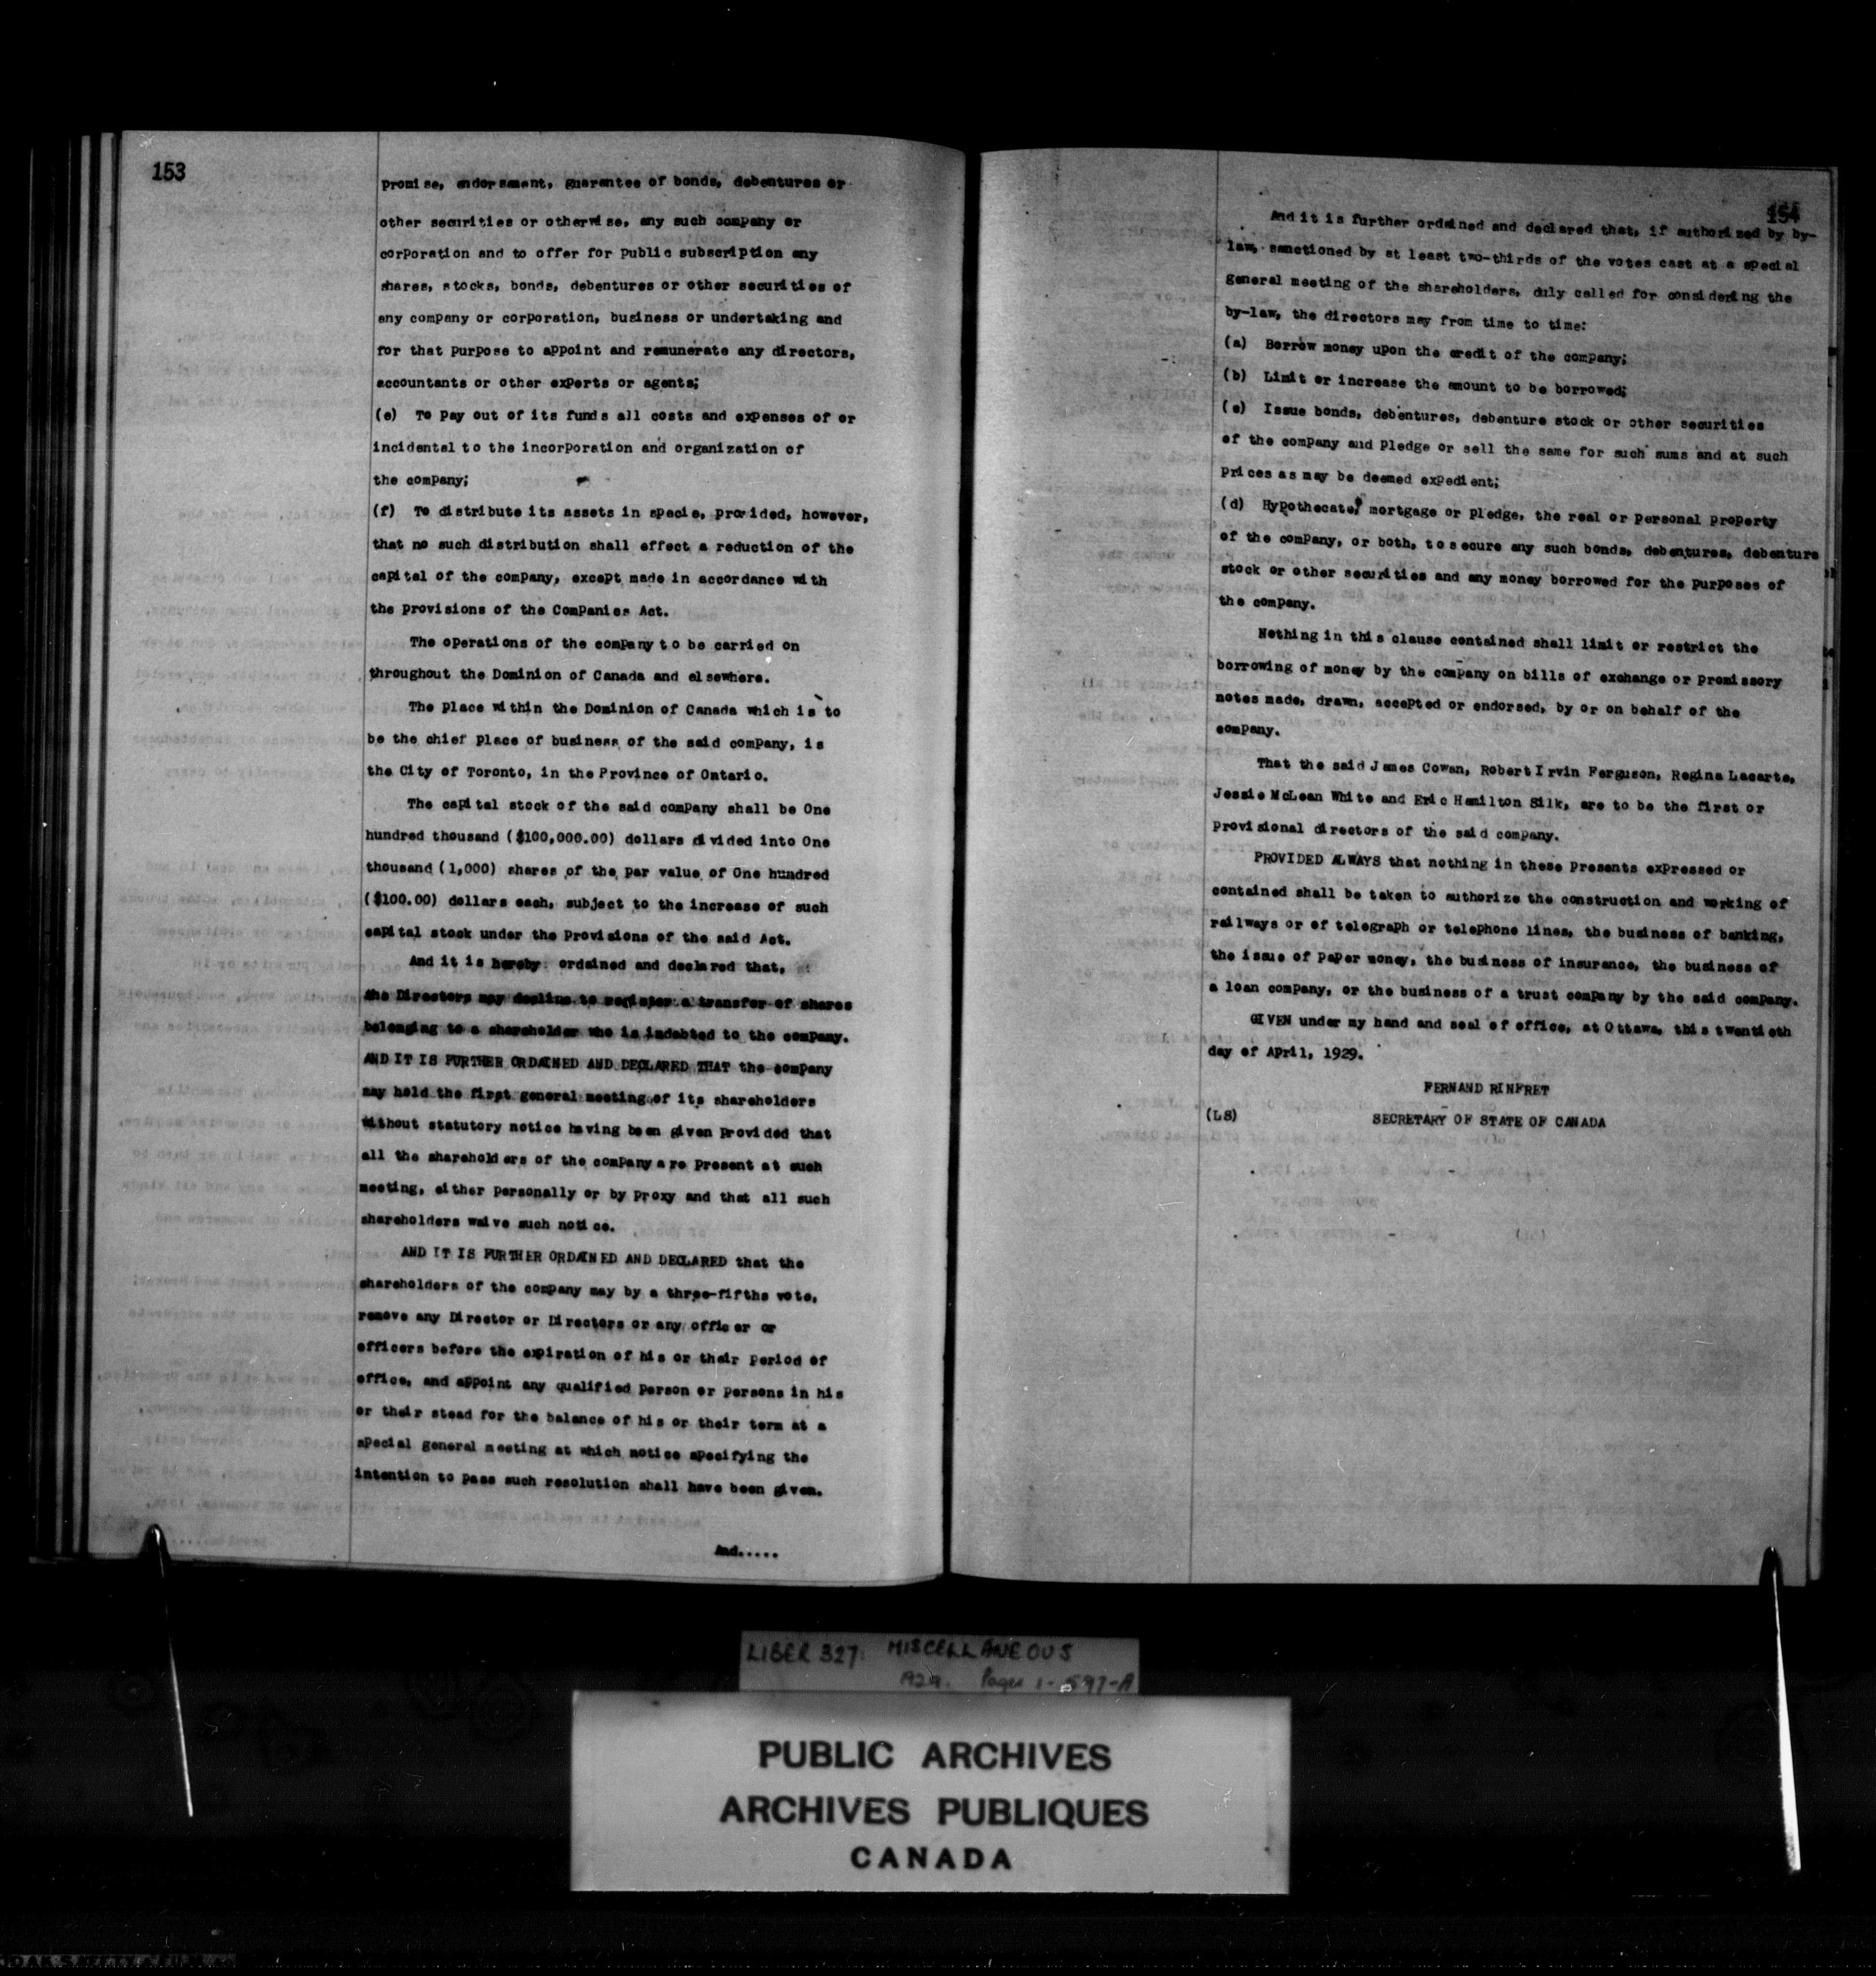 153
promise, endorsement, guarantee of bonds, debentures or
other securities or otherwise, any such company or
corporation and to offer for public subscription any
shares, stocks, bonds, debentures or other securities of
any company or corporation, business or undertaking and
for that purpose to appoint and remunerate any directors,
accountants or other experts or agents;
(e) To pay out of its funds all costs and expenses of or
incidental to the incorporation and organization of
the company;
(f) To distribute its assets in specie, provided, however,
that no such distribution shall effect a reduction of the
capital of the company, except made in accordance with
the provisions of the Companies Act.
The operations of the company to be carried on
throughout the Dominion of Canada and elsewhere.
The place within the Dominion of Canada which is to
be the chief place of business of the said company, is
the City of Toronto, in the Province of Ontario.
The capital stock of the said company shall be One
hundred thousand ($100,000.00) dollars divided into One
thousand (1,000) shares of the par value of One hundred
($100.00) dollars each, subject to the increase of such
capital stock under the provisions of the said Act.
And it is hereby ordained and declared that,
the Directors may decline to register a transfer of shares
belonging to a shareholder who is indebted to the company.
AND IT IS FURTHER ORDAINED AND DECLARED THAT the company
may hold the first general meeting of its shareholders
without statutory notice having been given provided that
all the shareholders of the company are present at such
meeting, either personally or by proxy and that all such
shareholders waive such notice.
AND IT IS FURTHER ORDAINED AND DECLARED that the
shareholders of the company may by a three-fifths vote,
remove any Director or Directors or any officer or
officers before the expiration of his or their period of
office, and appoint any qualified person or persons in his
or their stead for the balance of his or their term at a
special general meeting at which notice specifying the
intention to pass such resolution shall have been given.
And.....
154
And it is further ordained and declared that, if authorized by by-
law, sanctioned by at least two-thirds of the votes cast at a special
general meeting of the shareholders, duly called for considering the
by-law, the directors may from time to time:
(a) Borrow money upon the credit of the company;
(b) Limit or increase the amount to be borrowed;
(c) Issue bonds, debentures, debenture stock or other securities
of the company and pledge or sell the same for such sums and at such
prices as may be deemed expedient;
(d) Hypothecate, mortgage or pledge, the real or personal property
of the company, or both, to secure any such bonds, debentures, debenture
stock or other securities and any money borrowed for the purposes of
the company.
Nothing in this clause contained shall limit or restrict the
borrowing of money by the company on bills of exchange or promissory
notes made, drawn, accepted or endorsed, by or on behalf of the
company.
That the said James Cowan, Robert Irvin Ferguson, Regina Lacarte,
Jessie McLean White and Eric Hamilton Silk, are to be the first or
provisional directors of the said company.
PROVIDED ALWAYS that nothing in these presents expressed or
contained shall be taken to authorize the construction and working of
railways or of telegraph or telephone lines, the business of banking,
the issue of paper money, the business of insurance, the business of
a loan company, or the business of a trust company by the said company.
GIVEN under my hand and seal of office, at Ottawa, this twentieth
day of April, 1929.
FERNAND RINFRET
(LS) SECRETARY OF STATE OF CANADA
LIBER 327: MISCELLANEOUS
1929. Pages 1-597-A
PUBLIC ARCHIVES
ARCHIVES PUBLIQUES
CANADA